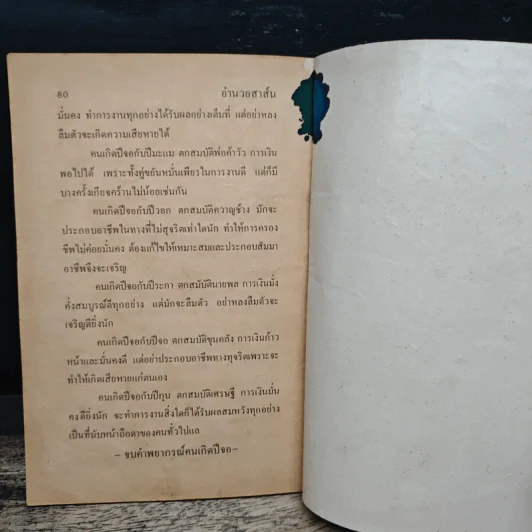 80 อำนวยสาส์น
มั่นคง ทำการงานทุกอย่างได้รับผลอย่างเต็มที่ แต่อย่าหลง
ลืมตัวจะเกิดความเสียหายได้
คนเกิดปีจอกับปีมะแม ตกสมบัติพ่อค้าวัว การเงิน
พอไปได้ เพราะทั้งคู่ขยันหมั่นเพียรในการงานดี แต่ก็มี
บางครั้งเกียจคร้านไม่น้อยเช่นกัน
คนเกิดปีจอกับปีวอก ตกสมบัติควาญช้าง มักจะ
ประกอบอาชีพในทางที่ไม่สุจริตเท่าใดนัก ทำให้การครอง
ชีพไม่ค่อยมั่นคง ต้องแก้ไขให้เหมาะสมและประกอบสัมมา
อาชีพจึงจะเจริญ
คนเกิดปีจอกับปีระกา ตกสมบัตินายพล การเงินมั่ง
คั่งสมบูรณ์ดีทุกอย่าง แต่มักจะลืมตัว อย่าหลงลืมตัวจะ
เจริญดียิ่งนัก
คนเกิดปีจอกับปีจอ ตกสมบัติขุนคลัง การเงินก้าว
หน้าและมั่นคงดี แต่อย่าประกอบอาชีพทางทุจริตเพราะจะ
ทำให้เกิดเสียหายแก่ตนเอง
คนเกิดปีจอกับปีกุน ตกสมบัติเศรษฐี การเงินมั่น
คงดียิ่งนัก จะทำการงานสิ่งใดก็ได้รับผลสมหวังทุกอย่าง
เป็นที่นับหน้าถือตาของคนทั่วไปแล
– จบคำพยากรณ์คนเกิดปีจอ –